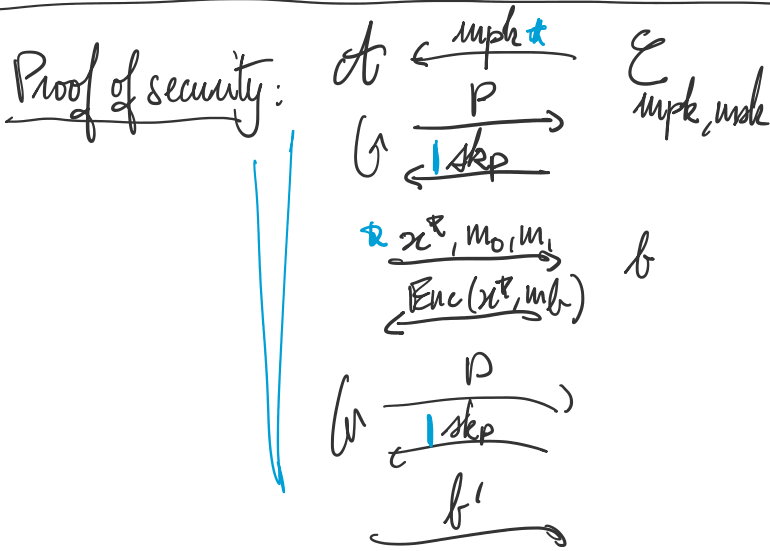 Proof of security:
A mpk* C
mpk, msk
P
skp
x*, m0, m1 b
Enc(x*, mb)
P
skp
b'